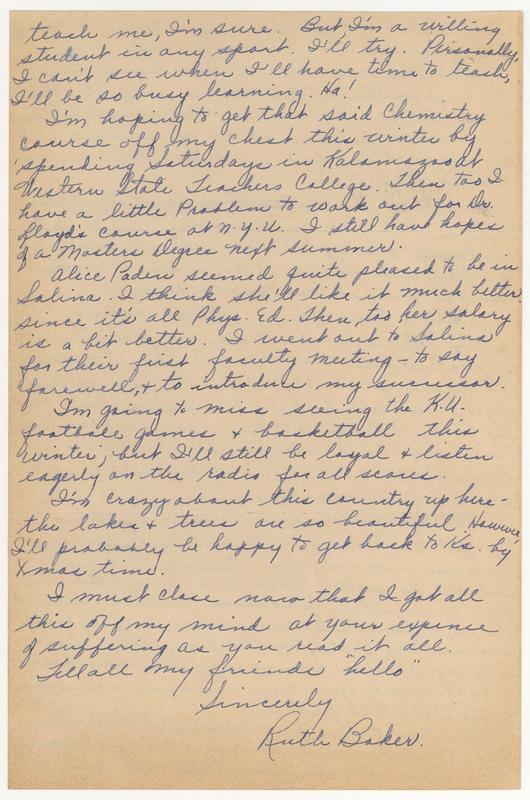 teach me, I'm sure. But, I'm a willing
student in any sport. I'll try. Personally,
I can't see when I'll have time to teach,
I'll be so busy learning. Ha!
I'm hoping to get that said Chemistry
course off my chest this winter by
spending Saturdays in Kalamazoo at
Western State Teachers College. Then too I
have a little Problem to work out for Dr.
Lloyd's course at N.Y.U. I still have hopes
of a Masters Degree next summer.
Alice Paden seemed quite pleased to be in
Salina. I think she'll like it much better
since it's all Phys. Ed. Then, too her salary
is a bit better. I went out to Salina
for their first faculty meeting - to say
farewell, + to introduce my successor.
I'm going to miss seeing the K.U.
football games + basketball this
winter; but I'll still be loyal & listen
eagerly on the radio for all scores.
I'm crazy about this country up here -
the lakes + trees are so beautiful. However,
I'll probably be happy to get back to Ks. by
Xmas time.
I must close now that I got all
this off my mind at your expence
of suffering as you read it all.
Tell all my friends "hello"
Sincerely
Ruth Baker.